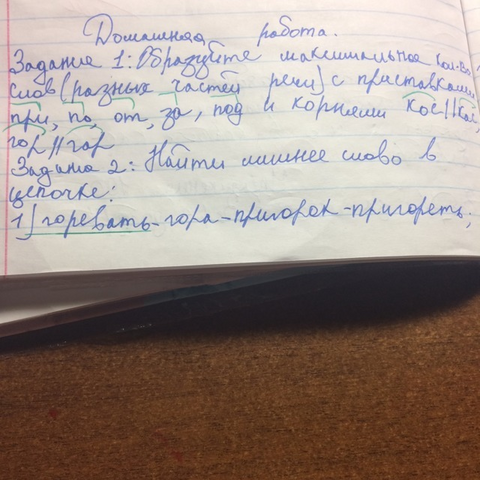 Домашняя работа.
Задание 1: Образуйте максимальное кол-во
слов (разных частей речи) с приставками
при, по, от, за, под и корнями кос//кас,
гор//гар
Задание 2: Найти лишнее слово в
цепочке:
1) горевать-гора-пригорок-пригореть;